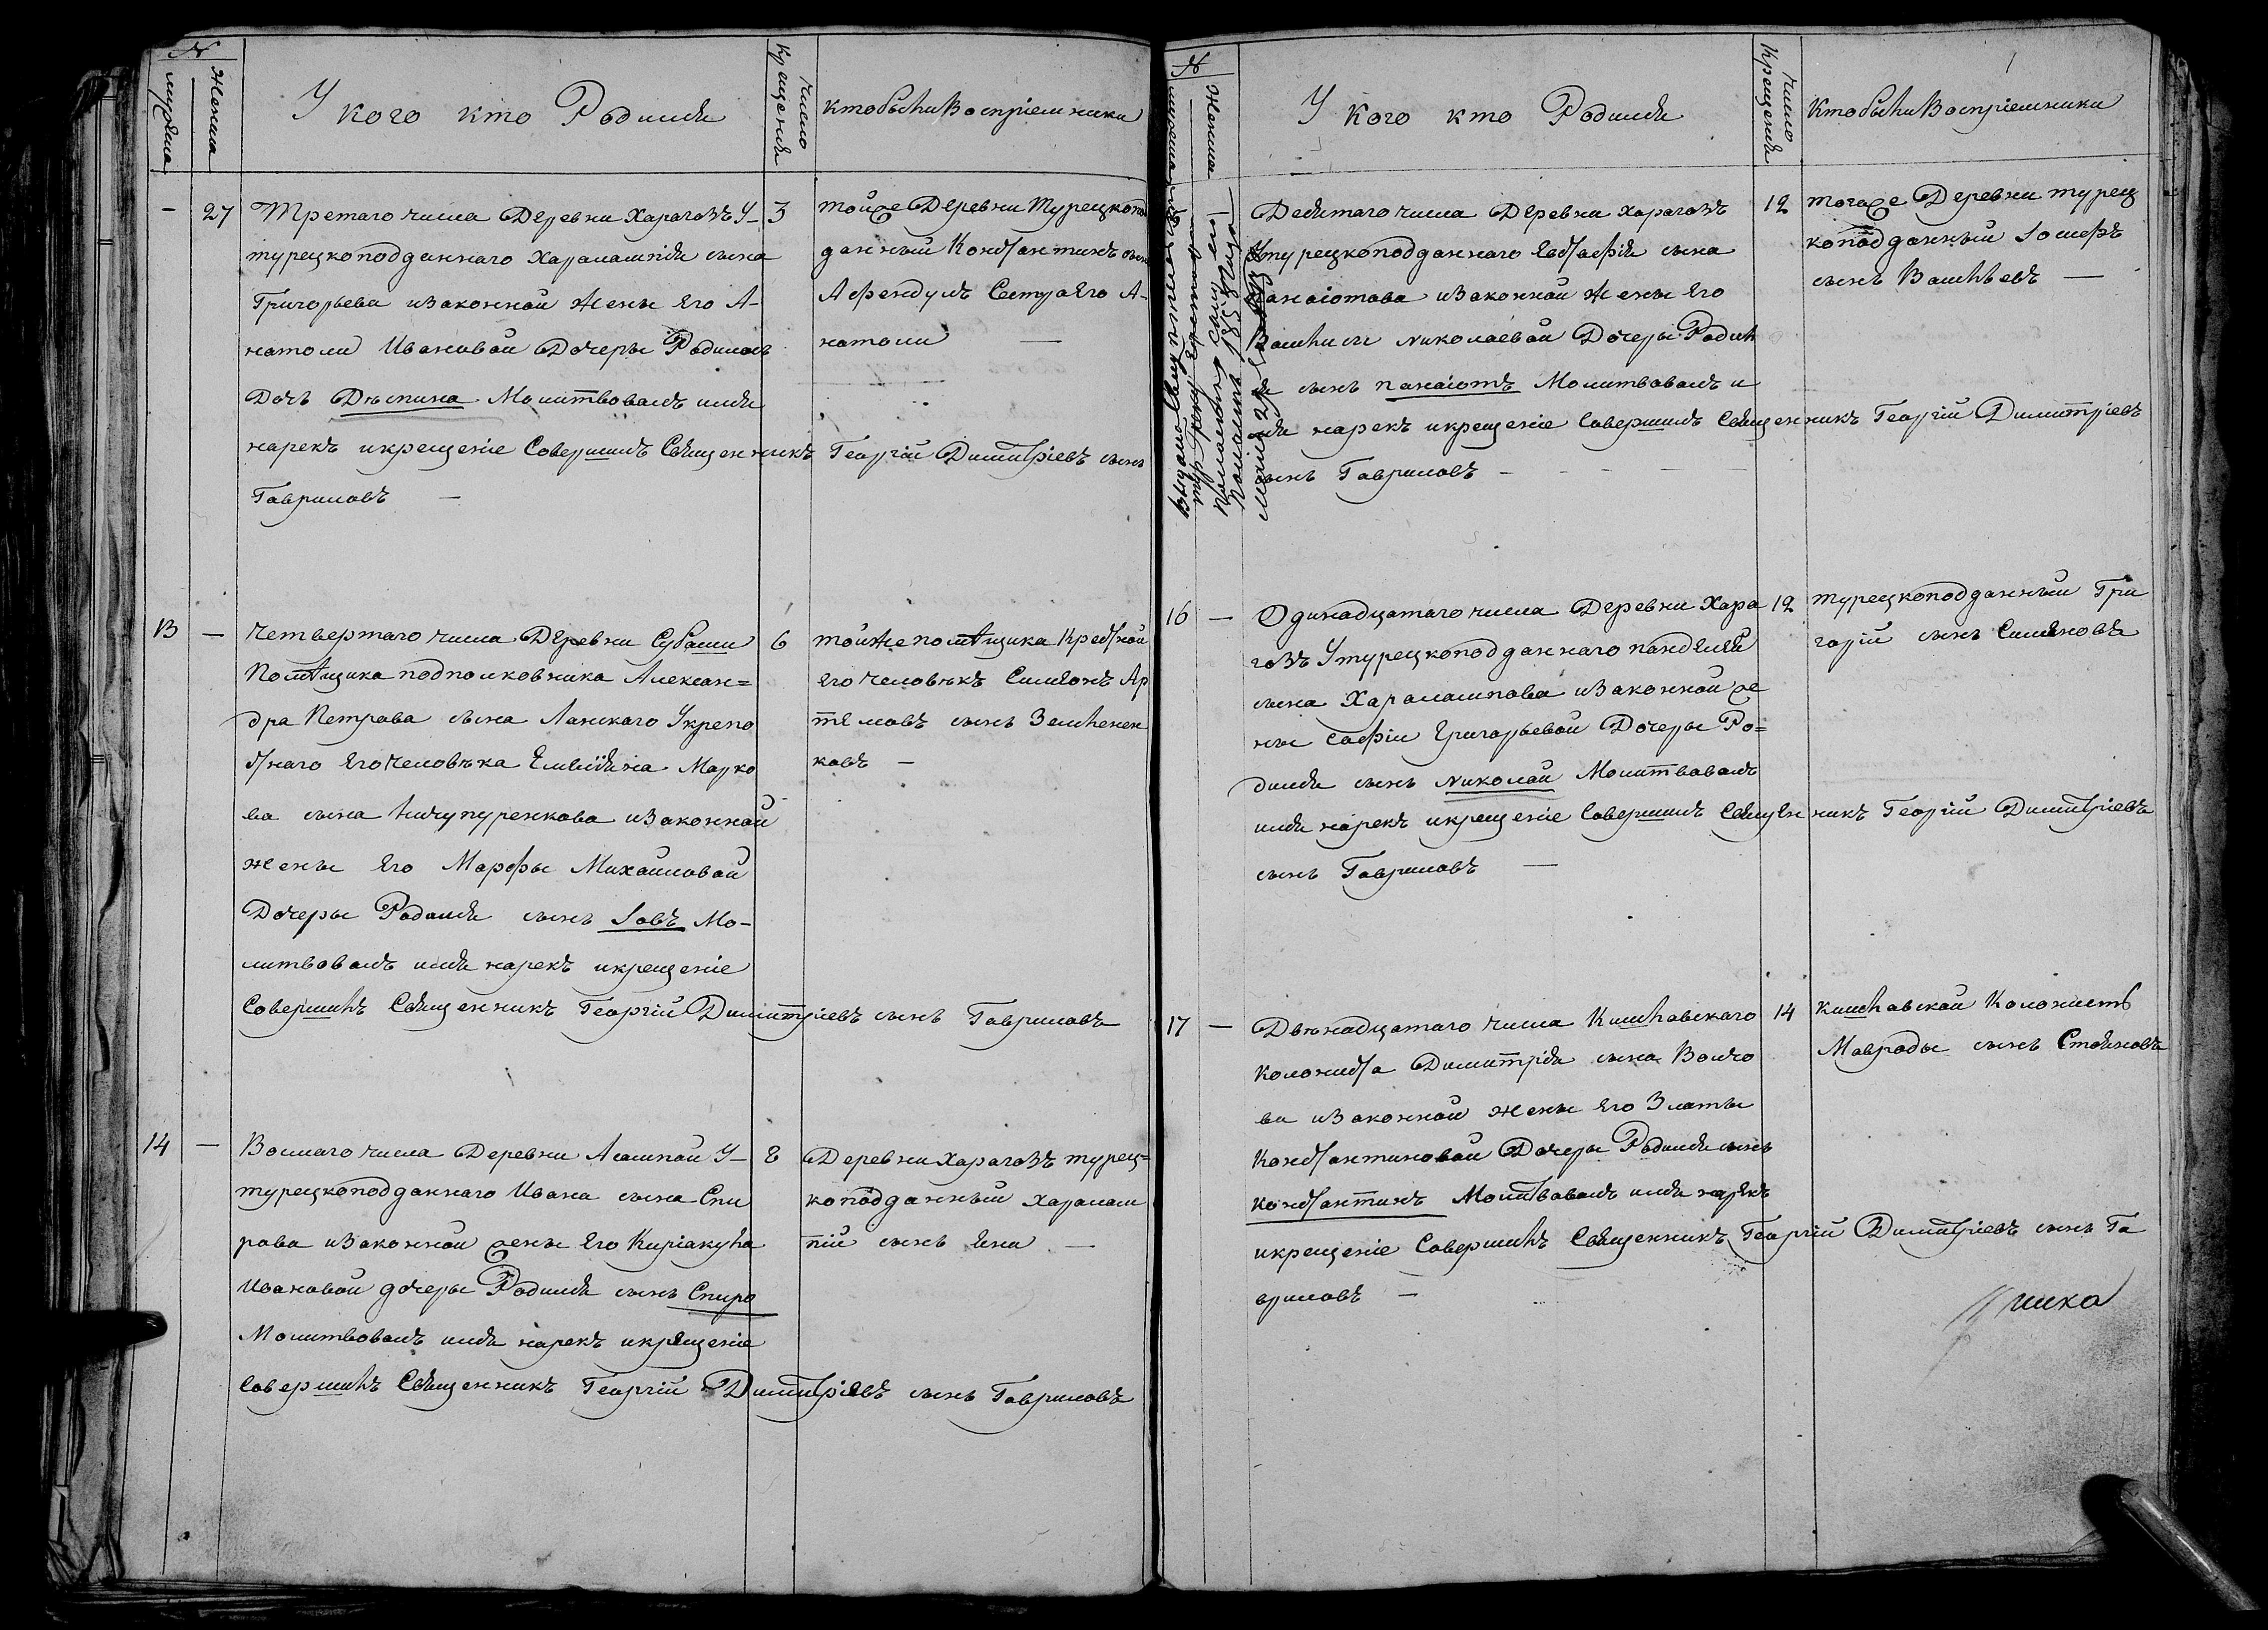 №
мужеска
Женска
У кого кто Родился
Число Крещения
кто были Восприемники
— 27
Третаго числа Деревни Харагозъ У- 3
турецкоподданнаго Харалампія сына
Григорьева изаконной жены Его А-
натоли Ивановой Дочеры Родилась
Дочь Дѣспина Молитвовалъ имя
нарекъ икрещеніе Совершилъ Священникъ Георгій Димитріевъ сынъ
Гавриловъ —
тойже Деревни Турецкопо
данный Константинъ сынъ
Афендулъ Сестра Его А-
натоли —
13 —
Четвертаго числа Деревни Субаши 6
Помѣщика подполковника Алексан=
дра Петрова сына Ланскаго Укрепо
стнаго Его человѣка Емелiяна Марко
ва сына Ничупуренкова изаконной
жены Его Марфы Михайловой
Дочеры Родился сынъ Іовъ Мо-
литвовалъ имя нарекъ икрещеніе
Совершилъ Священникъ Георгій Димитріевъ сынъ Гавриловъ
тойже помѣщика Крестной
Его человѣкъ Симеонъ Ар
темовъ сынъ Земленен
ковъ —
14 —
Восмаго числа Деревни Аашпай У- 8
турецкоподданнаго Ивана сына Спи
рова изаконной жены Его Киріакула
Ивановой дочеры Родился сынъ Спиро
Молитвовалъ имя нарекъ икрещеніе
Совершилъ Священникъ Георгій Димитріевъ сынъ Гавриловъ
Деревни Харагозъ турец=
коподданный Харалам
пій сынъ Яни —
№
мужеска
Женска
У кого кто Родился
Число Крещения
Кто были Восприемники
1858 года
Девятаго числа Деревни Харагозъ 12
Утурецкоподданнаго Евстафія сына
Панаіотова изаконной жены Его
Николаевой Дочеры Родил
ся сынъ Панаіотъ Молитвовалъ и
мя нарекъ икрещеніе Совершилъ Священникъ Георгій Димитріевъ
сынъ Гавриловъ —
тогоже Деревни турец
коподданный Іосифъ
сынъ Васильевъ —
16 —
Одинадцатаго числа Деревни Хара 12
гозъ Утурецкоподданнаго пандѣлѣй
сына Харалампова изаконной же
ны Софіи Григорьевой Дочеры Ро=
дился сынъ Николай Молитвовалъ
имя нарекъ икрещеніе Совершилъ Священникъ Георгій Димитріевъ
сынъ Гавриловъ —
турецкоподданный Гри
горій сынъ Сименовъ
17 —
Двѣнадцатаго числа Кишлавскаго 14
колониста Димитрія сына Волчо
ва изаконной жены Его Златы
Константиновой Дочеры Родился сынъ
Константинъ Молитвовалъ имя нарекъ
икрещеніе Совершилъ Священникъ Георгій Димитріевъ сынъ Га
вриловъ —
Кишлавской Колонистъ
Мавроды сынъ Стояновъ